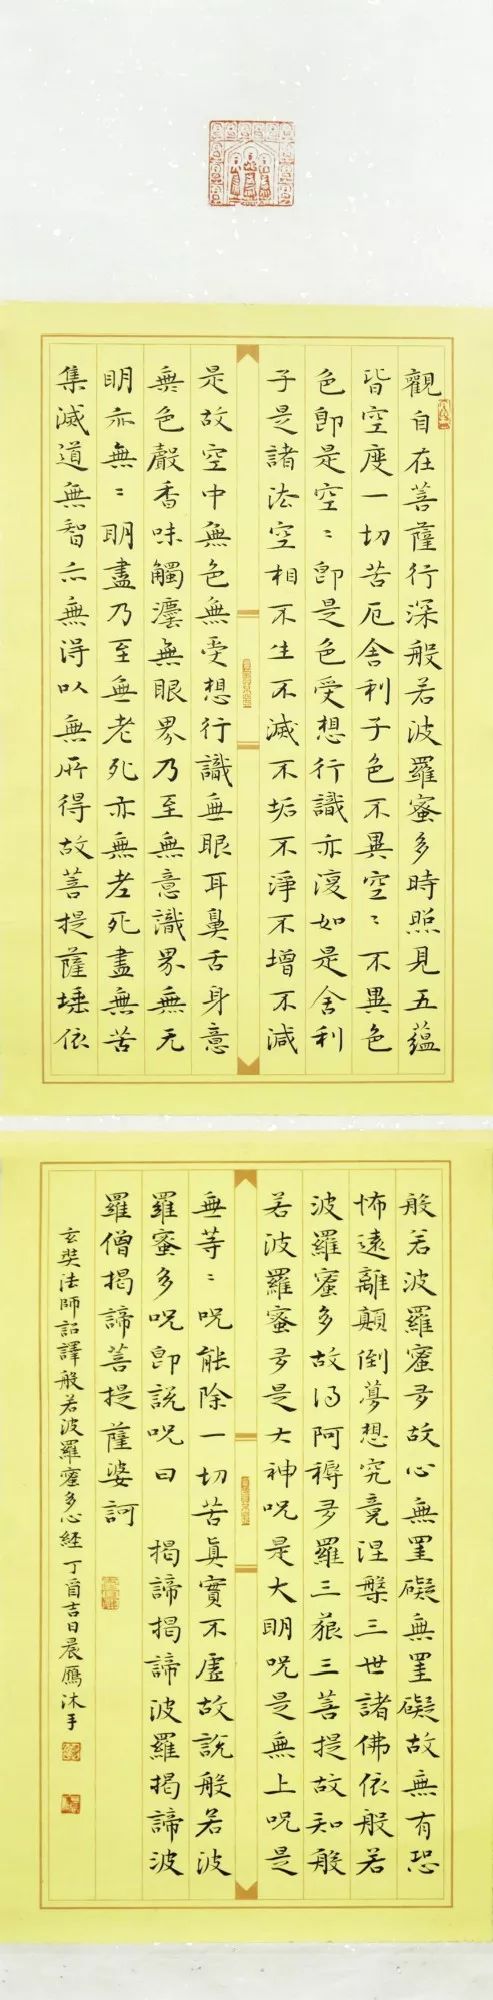 觀自在菩薩行深般若波羅蜜多時照見五蘊
皆空度一切苦厄舍利子色不異空〻不異色
色即是空〻即是色受想行識亦復如是舍利
子是諸法空相不生不滅不垢不淨不增不減
是故空中無色無受想行識無眼耳鼻舌身意
無色聲香味觸灋無眼界乃至無意識界無无
明亦無〻明盡乃至無老死亦無老死盡無苦
集滅道無智亦無得以無所得故菩提薩埵依
般若波羅蜜多故心無罣礙無罣礙故無有恐
怖遠離顛倒夢想究竟涅槃三世諸佛依般若
波羅蜜多故得阿耨多羅三藐三菩提故知般
若波羅蜜多是大神呪是大明呪是無上呪是
無等〻呪能除一切苦真實不虛故說般若波
羅蜜多呪即說呪曰 揭諦揭諦波羅揭諦波
羅僧揭諦菩提薩婆訶
玄奘法師詔譯般若波羅蜜多心經 丁酉吉日晨鴈沐手